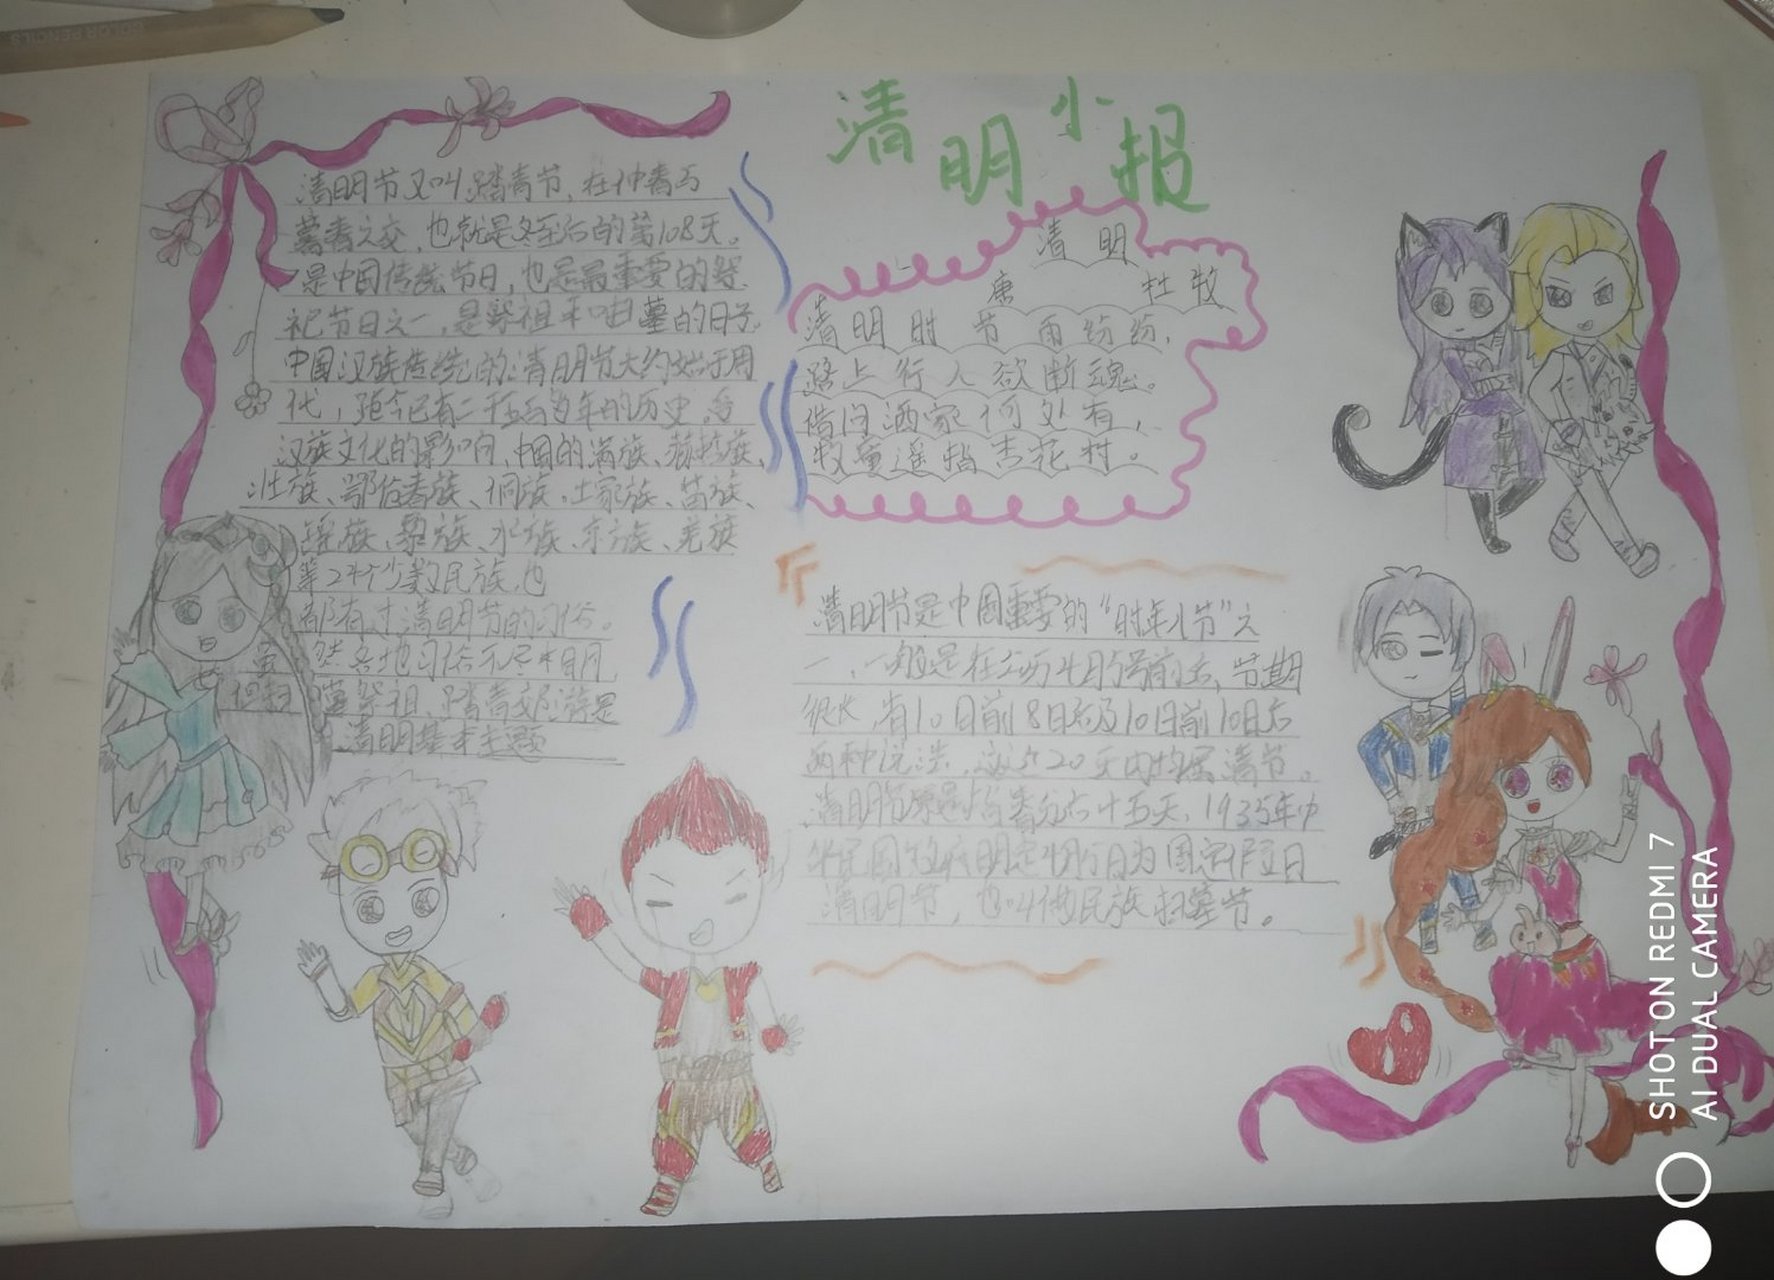 清明小报
清明节又叫踏青节，在仲春与
暮春之交，也就是冬至后的第108天。
是中国传统节日，也是最重要的祭
祀节日之一，是祭祖和扫墓的日子。
中国汉族传统的清明节大约始于周
代，距今已有二千五百多年的历史。受
汉族文化的影响，中国的满族、赫哲族、
壮族、鄂伦春族、侗族、土家族、苗族、
瑶族、黎族、水族、京族、羌族
等24个少数民族，也
都有过清明节的习俗。
虽然各地习俗不尽相同
但扫墓祭祖、踏青郊游是
清明基本主题
清明
唐 杜牧
清明时节雨纷纷，
路上行人欲断魂。
借问酒家何处有，
牧童遥指杏花村。
清明节是中国重要的“时年八节”之
一，一般是在公历4月5号前后，节期
很长，有10日前8日后及10日前10日后
两种说法，这近20天内均属清节。
清明节原是指春分后十五天，1935年中
华民国政府明定4月5日为国定假日
清明节，也叫做民族扫墓节。
COLOR PENCILS
SHOT ON REDMI 7
AI DUAL CAMERA